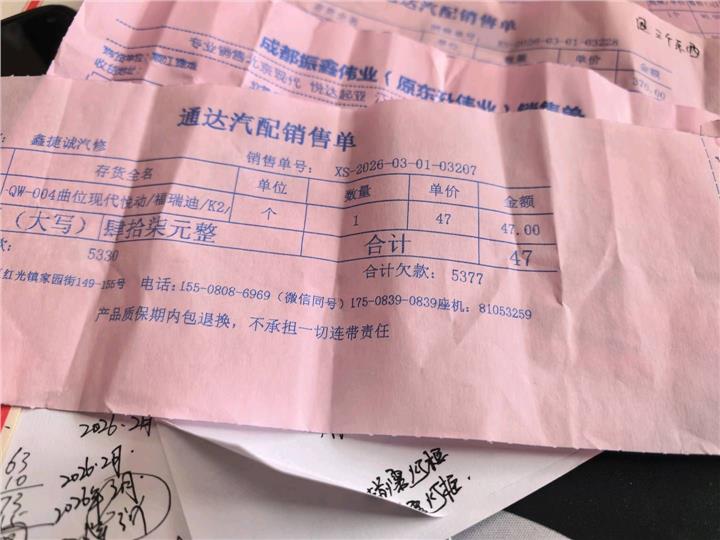 通达汽配销售单
XS-2026-03-01-03228
数量 单价 金额
376.00
这三个东西
专业销售:北京现代 悦达起亚
成都振鑫伟业(原东升伟业)销售单
通达汽配销售单
鑫捷诚汽修 销售单号: XS-2026-03-01-03207
存货全名 单位 数量 单价 金额
QW-004曲位现代悦动/福瑞迪/K2/ 个 1 47 47.00
(大写)肆拾柒元整 合计 47
款: 5330 合计欠款: 5377
红光镇家园街149-155号 电话:155-0808-6969(微信同号)175-0839-0839座机:81053259
产品质保期内包退换,不承担一切连带责任
2026.2月
63 2026.2月.
10 2026年3月
73